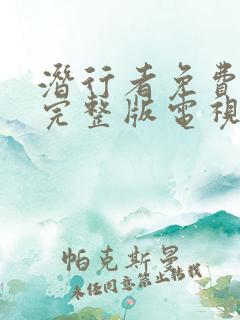 潛行者免費
完整版電視
帕克斯曼
未经同意禁止转载